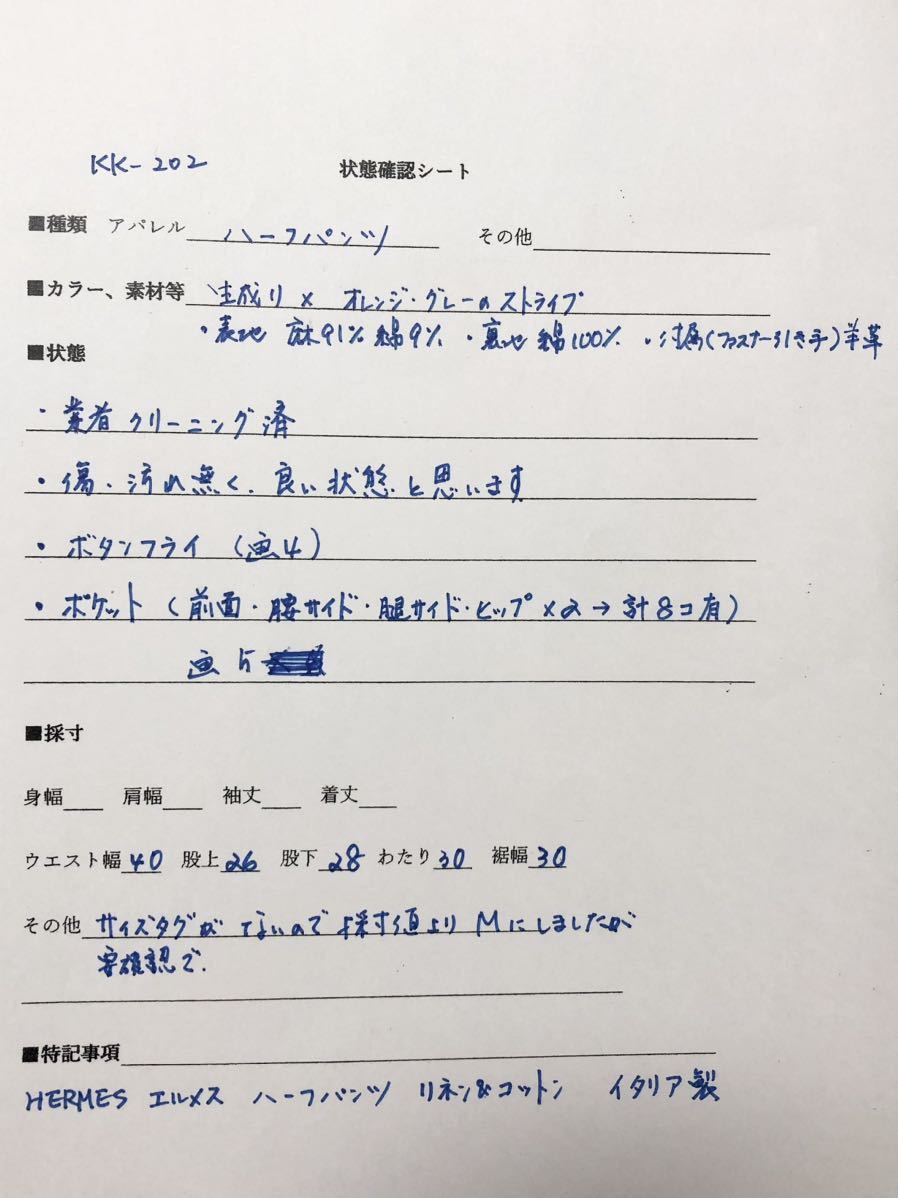 KK-202 状態確認シート
■種類 アパレル ハーフパンツ その他
■カラー、素材等 生成り × オレンジ・グレーのストライプ
・表地 麻91% 綿9% ・裏地 綿100% ・付属(ファスナー引き手)羊革
■状態
・業者クリーニング済
・傷、汚れ無く、良い状態と思います
・ボタンフライ (画4)
・ポケット (前面・腰サイド・腿サイド・ヒップ×2→計8コ有)
画5
■採寸
身幅 肩幅 袖丈 着丈
ウエスト幅 40 股上 26 股下 28 わたり 30 裾幅 30
その他 サイズタグがないので採寸値よりMにしましたが
要確認で.
■特記事項
HERMES エルメス ハーフパンツ リネン&コットン イタリア製